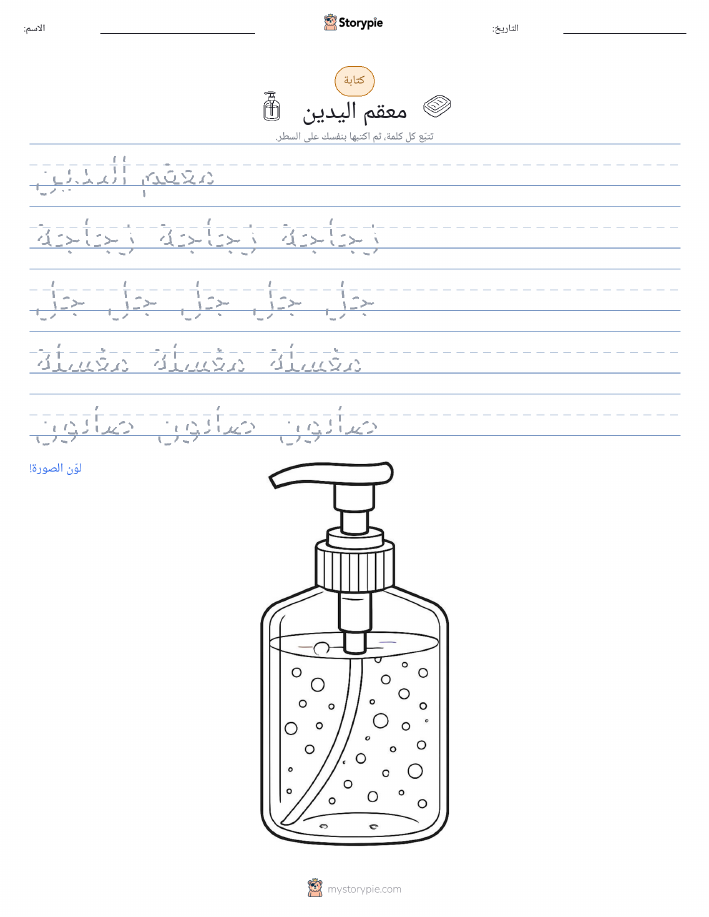 الاسم:
Storypie
التاريخ:
كتابة
معقم اليدين
تتبّع كل كلمة، ثم اكتبها بنفسك على السطر.
معقم اليدين
زجاجة زجاجة زجاجة
جل جل جل جل جل
مغسلة مغسلة مغسلة
صابون صابون صابون
لوّن الصورة!
mystorypie.com